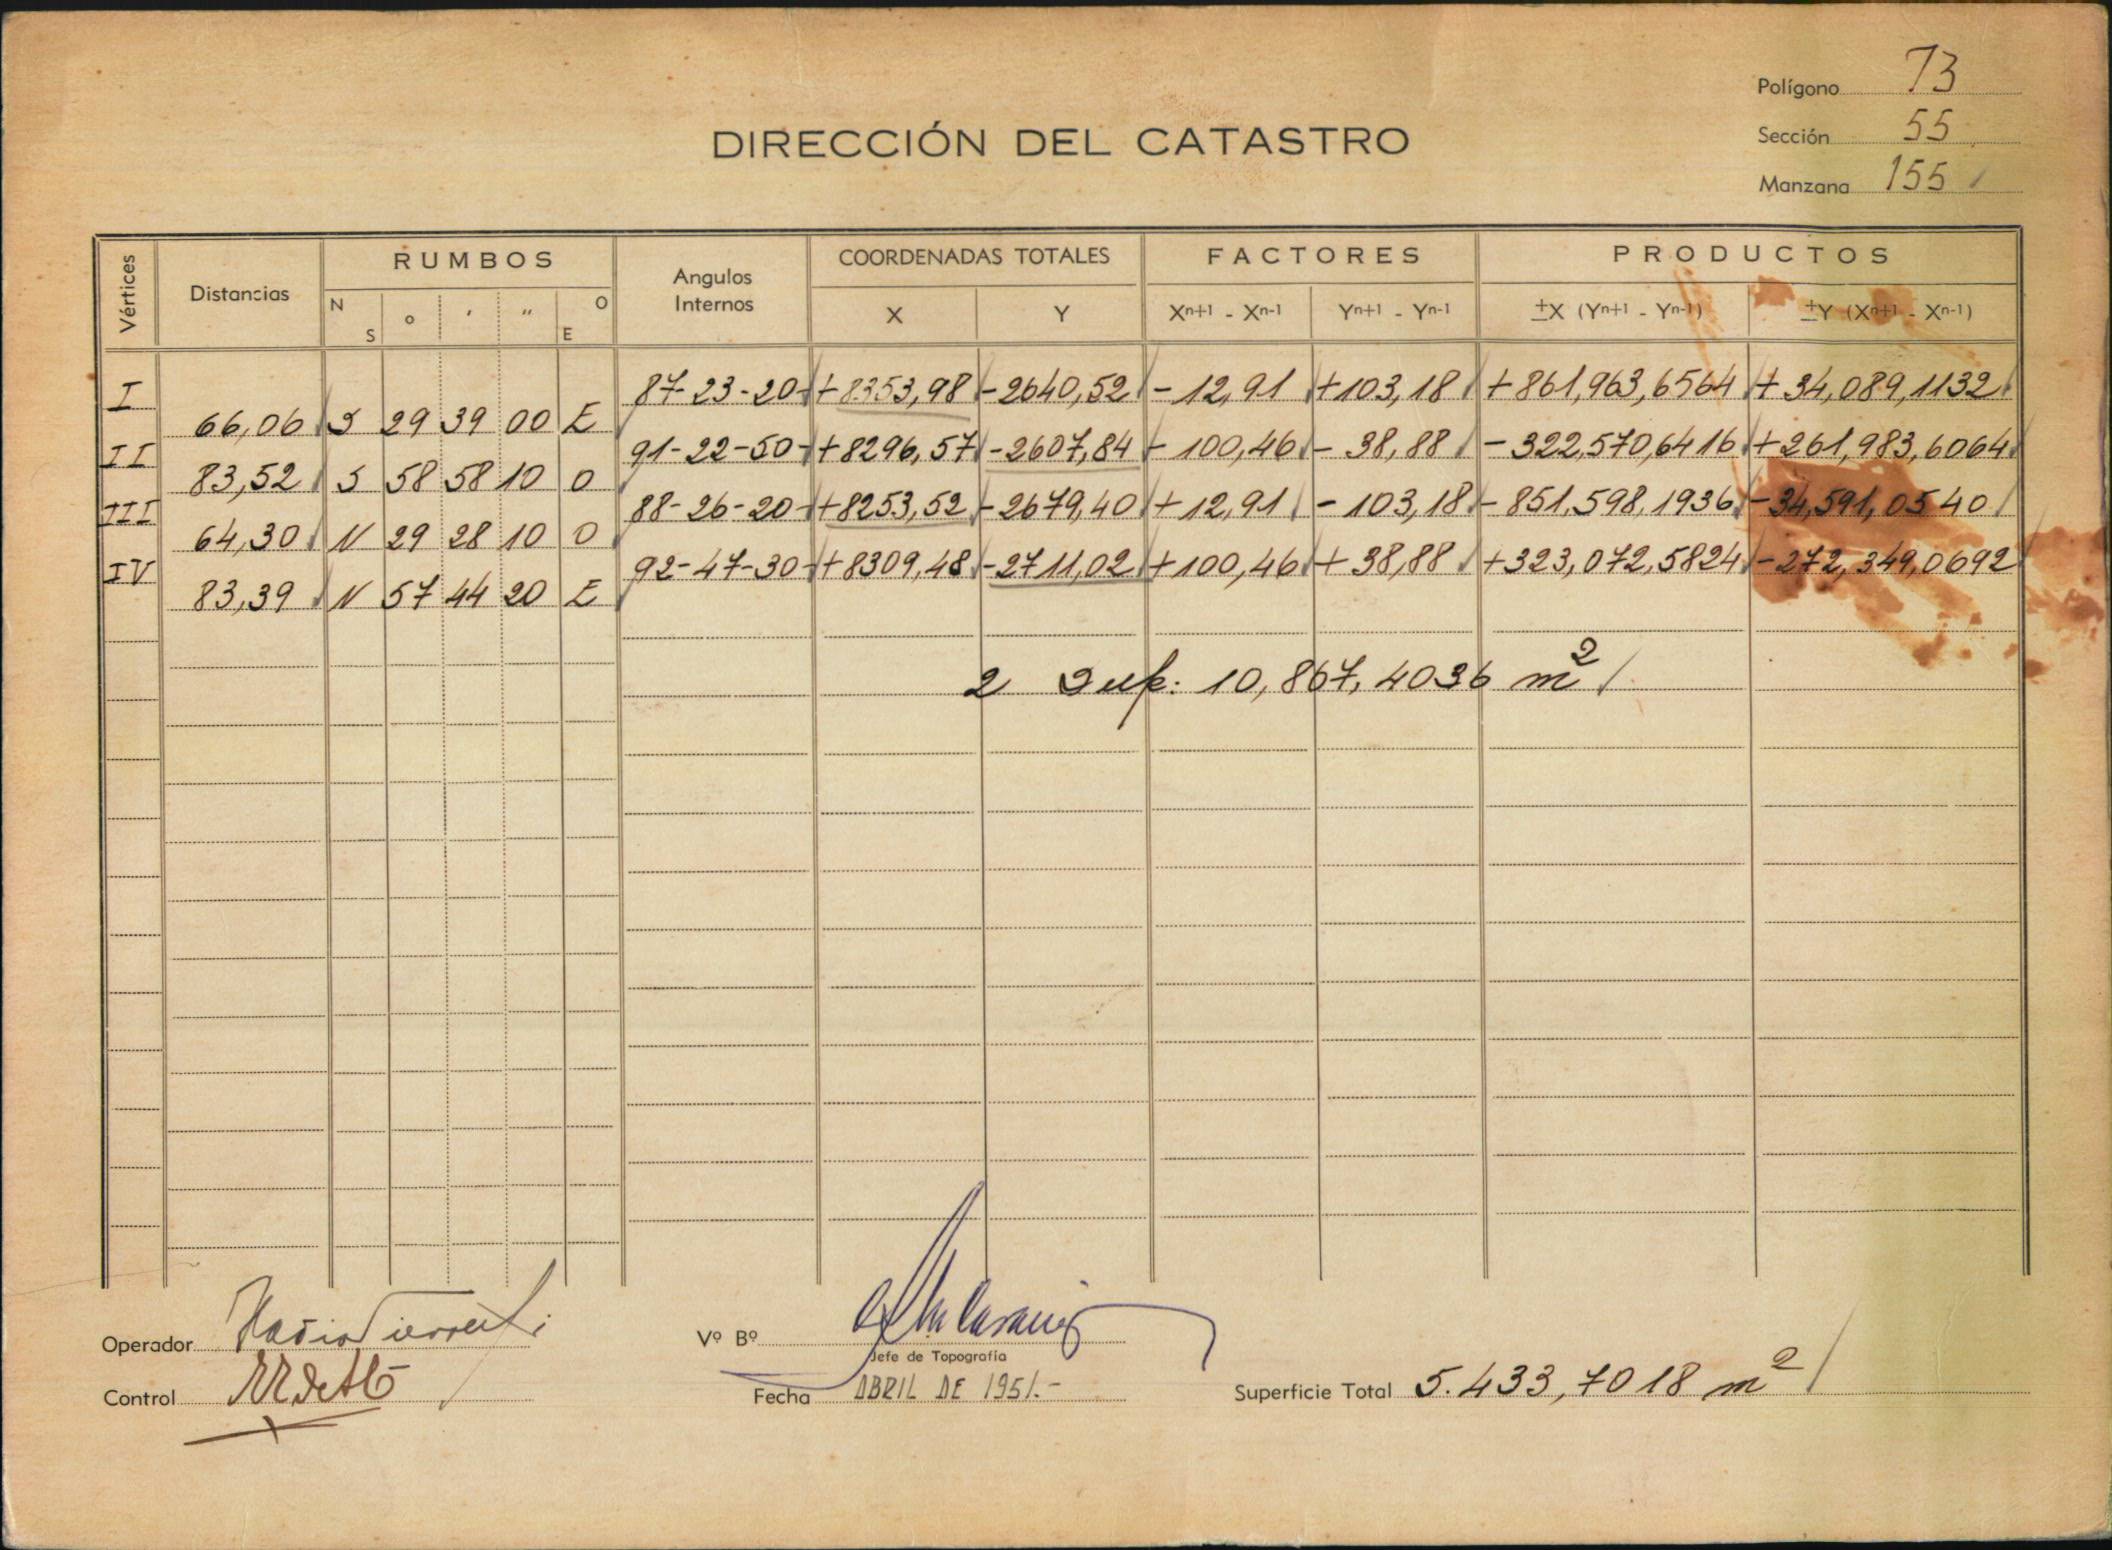 Polígono 73
DIRECCIÓN DEL CATASTRO
Sección 55
Manzana 155
Vértices Distancias RUMBOS Angulos Internos COORDENADAS TOTALES FACTORES PRODUCTOS
N S ° ' " O E X Y Xn+1 - Xn-1 Yn+1 - Yn-1 ±X (Yn+1 - Yn-1) ±Y (Xn+1 - Xn-1)
I 87-23-20 +8353,98 -2640,52 -12,91 +103,18 +861,963,6564 +34,089,1132
66,06 S 29 39 00 E
II 91-22-50 +8296,57 -2607,84 -100,46 -38,88 -322,570,6416 +261,983,6064
83,52 S 58 58 10 O
III 88-26-20 +8253,52 -2679,40 +12,91 -103,18 -851,598,1936 -34,591,0540
64,30 N 29 28 10 O
IV 92-47-30 +8309,48 -2711,02 +100,46 +38,88 +323,072,5824 -272,349,0692
83,39 N 57 44 20 E
2 Sup: 10,867,4036 m2
Operador
Vº Bº
Jefe de Topografía
Control
Fecha ABRIL DE 1951.-
Superficie Total 5.433,7018 m2